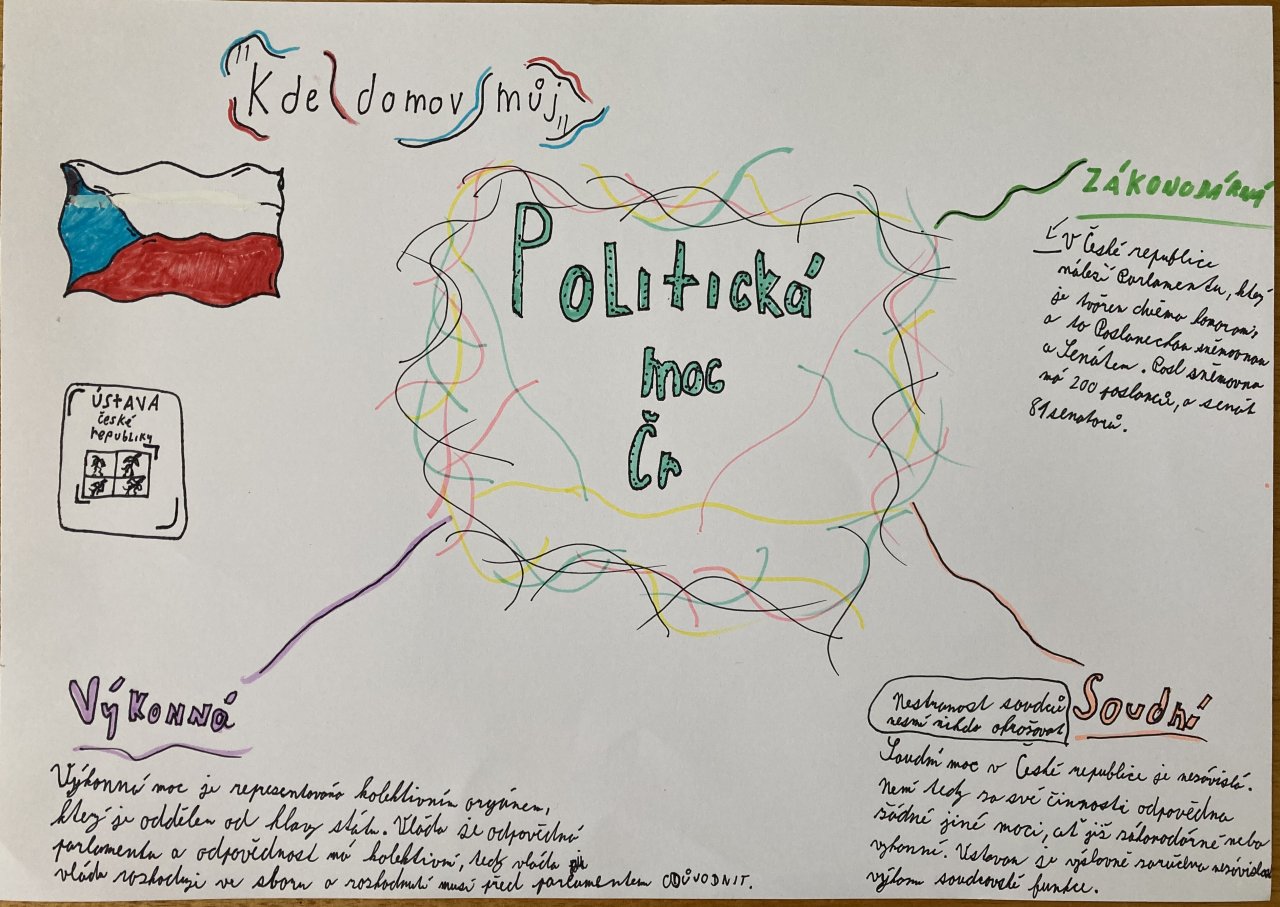 "Kde domov můj"
Politická
moc
Čr
ÚStAVA
české
republiky
ZÁKONODÁRNÁ
V České republice
náleží Parlamentu, který
je tvořen dvěma komorami,
a to Poslaneckou sněmovnou
a Senátem. Posl sněmovna
má 200 poslanců, a senát
81 senatorů.
Výkonná
Výkonná moc je representována kolektivním orgánem,
který je oddělen od hlavy státu. Vláda je odpovědná
parlamentu a odpovědnost má kolektivní, tedy vláda
vláda rozhoduje ve sboru a rozhodnutí musí před parlamentem ODŮVODNIT.
Nestranost soudců
nesmí nikdo ohrožovat
Soudní
Soudní moc v České republice je nezávislá.
Není tedy za své činnosti odpovědna
žádné jiné moci, ať již zákonodárné nebo
výkonní. Ústavou je výslovně zaručena nezávislost
výkonu soudcovské funkce.